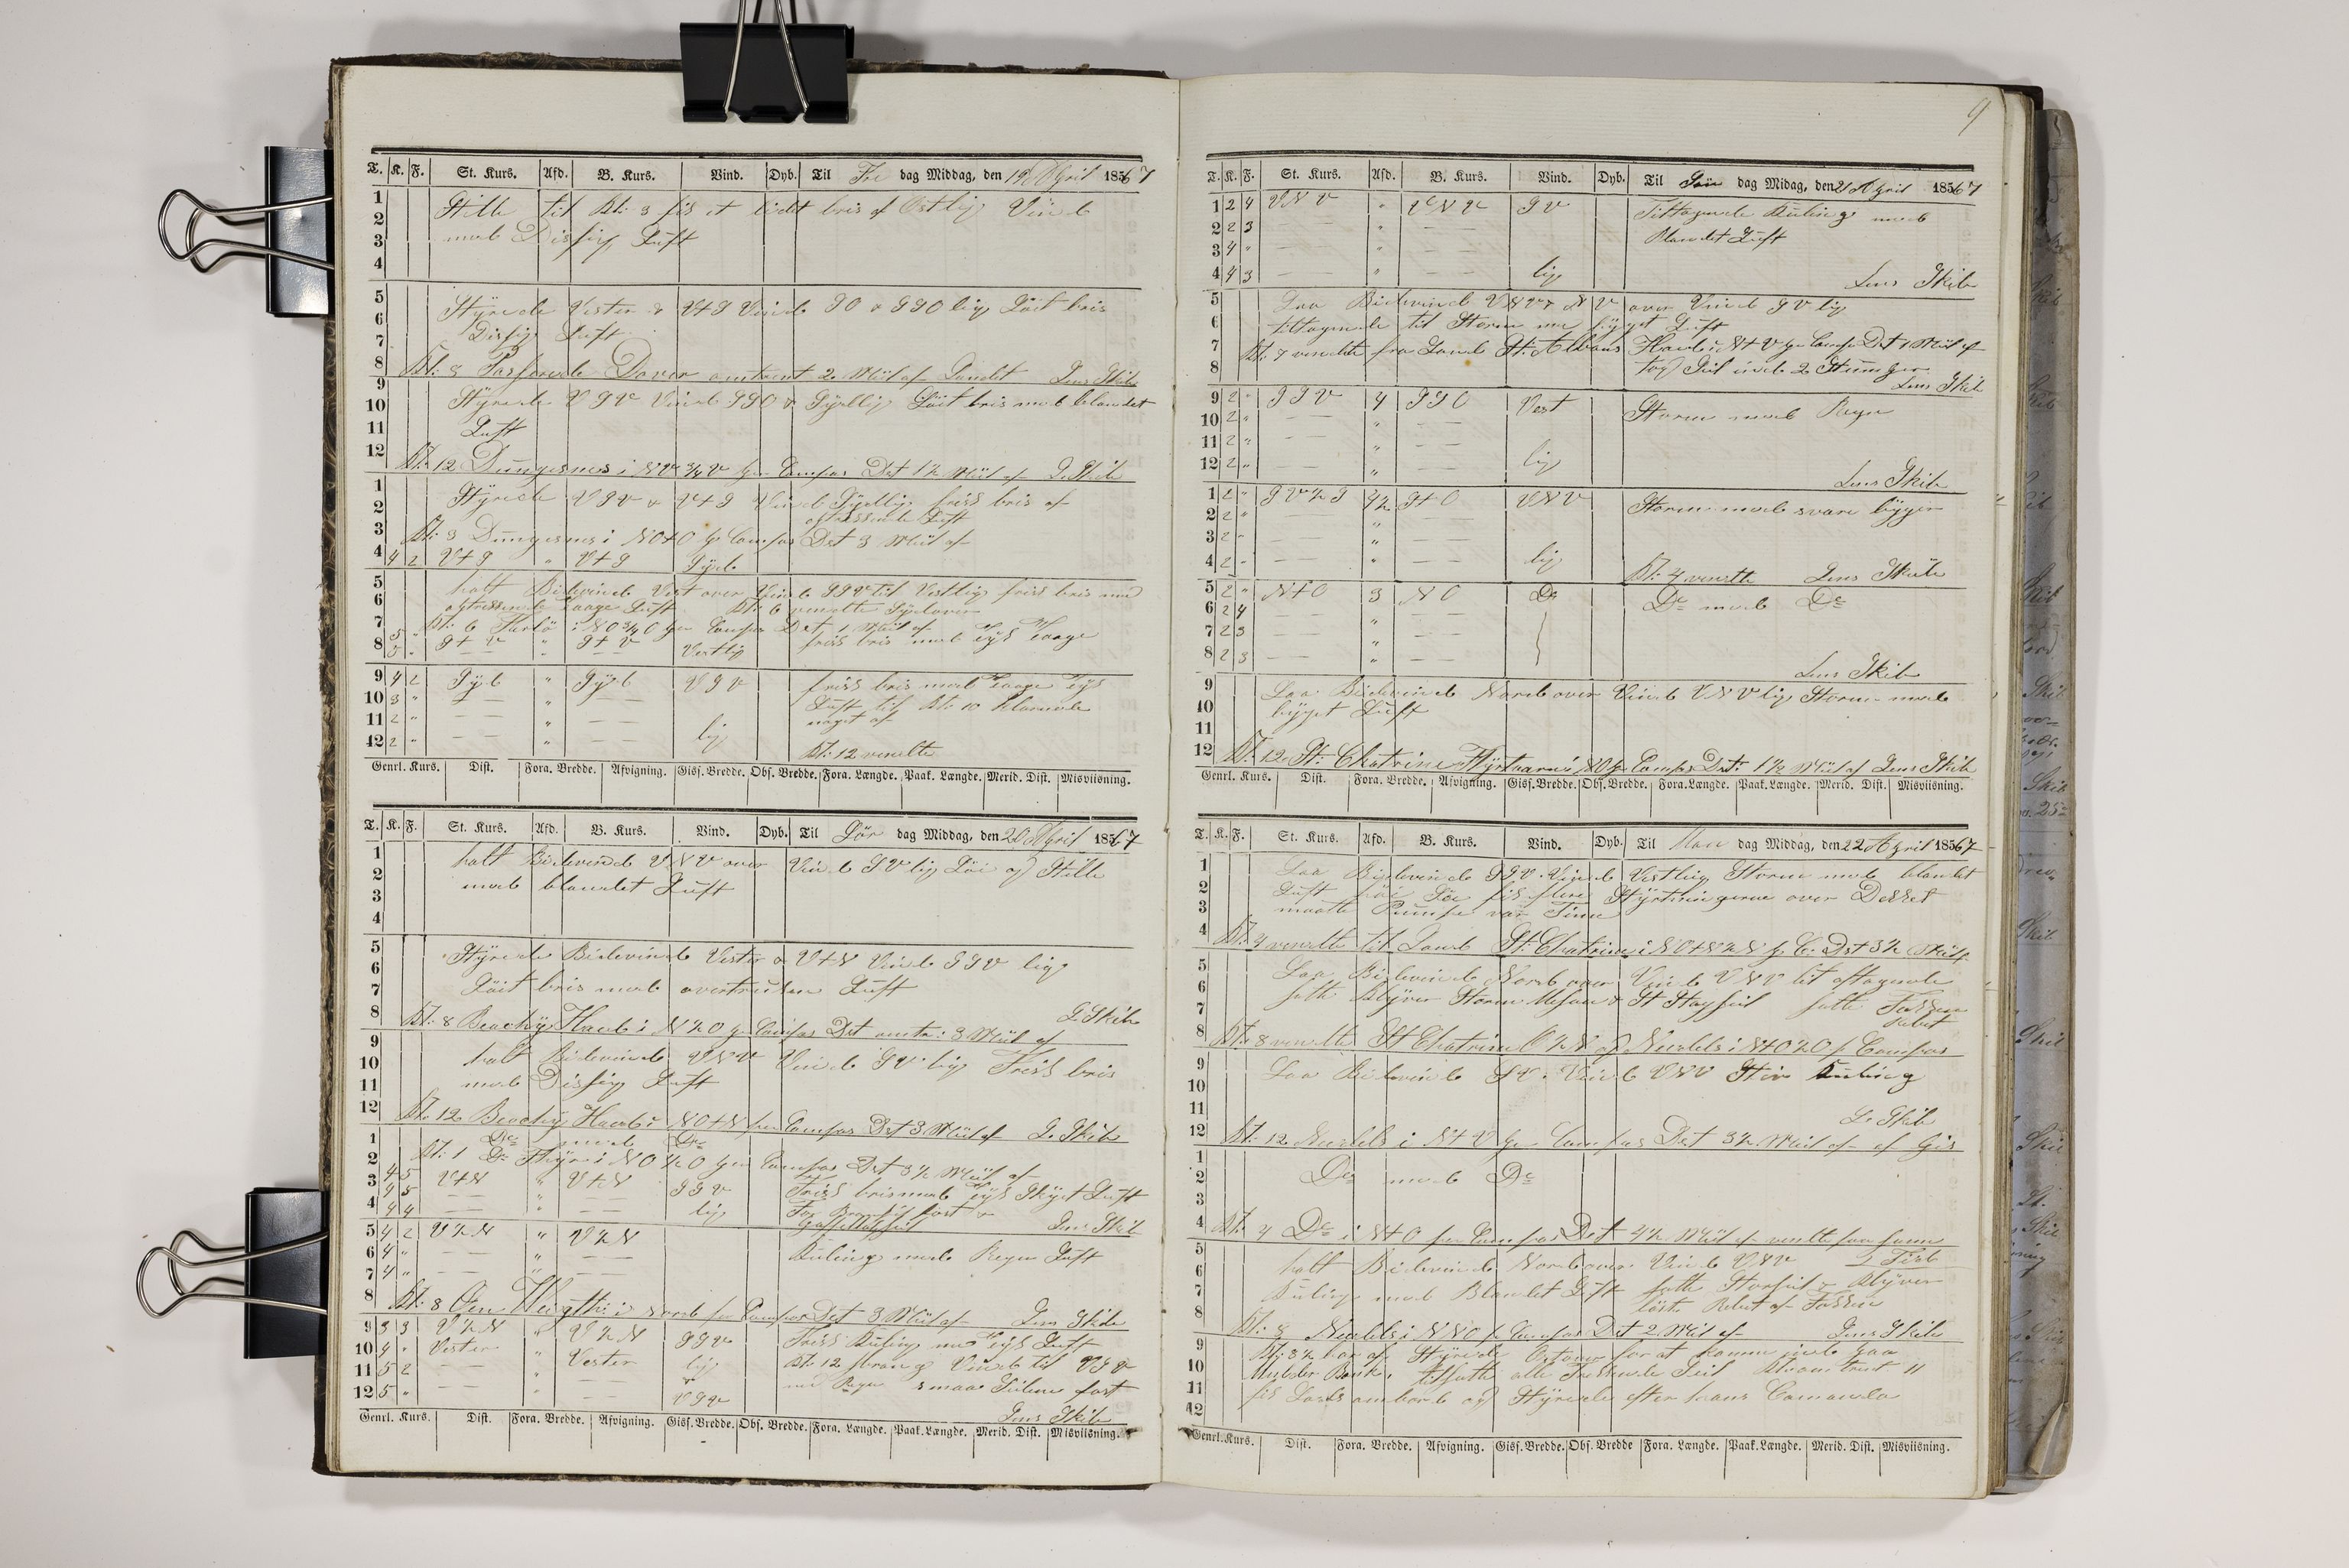 9
T. K. F. St. Kurs. Afd. B. Kurs. Vind. Dyb. Til Fre dag Middag, den 19 April 1867
1 Stille til Kl: 3 fik et lidet bris af Ostlig Vind
2 med Disfig Luft
3
4
5 Styrede Vester & VtS Vind SO & SSO lig Löit bris
6 Disfig Luft
7
8 Kl: 8 Passerede Dover omtrent 2 Miil af Landet Lens Skib
9 Styrede VSV Vind SSO & Sydlig Löit bris med blandet
10 Luft
11
12 Kl: 12 Dungesnes i NV 3/4 V per Compas Dst 1½ Miil af L. Skib
1 Styrede VSV & VtS Vind Sydlig frisk bris af
2 Luft
3 Kl: 3 Dungesnes i NOtO pr Compas Dst 3 Miil af
4 4 2 VtS " VtS Syd
5 halt Bidevind Vest over Vind SSV til Vestlig frisk bris med
6 Taage Luft Kl: 6 vendte Sydover
7 Kl: 6 i NO ¾ O per Compas Dst 1 Miil af
5 " StV " StV frisk bris med Tyk Taage
8 5 " — — " — — Vestlig
9 4 2 Syd " Syd VSV frisk bris med Taage Tyk
10 3 " — — " — — Luft til Kl: 10 klarnede
11 2 " — — " — — noget af
12 2 " — — " — — lig Kl: 12 vendte
Genrl. Kurs. Dist. Fora. Bredde. Afvigning. Gisf. Bredde. Obs. Bredde. Fora. Længde. Paak. Længde. Merid. Dist. Misviisning.
T. K. F. St. Kurs. Afd. B. Kurs. Vind. Dyb. Til Lör dag Middag, den 20 April 1867
1 halt Bidevind VNV over Vind SV lig Löi og Stille
2 med blandet Luft
3
4
5 Styrede Bidevind Vester & VtN Vind SSV lig
6 Löit bris med overtrukken Luft
7
8 Kl: 8 Beachy Head i N ½ O per Compas Dst omtr: 3 Miil af L. Skib
9
10 halt Bidevind VNV Vind SV lig Frisk bris
11 med Disfig Luft
12 Kl: 12 Beachy Head i NOtN per Compas Dst 3 Miil af L. Skib
1 Do med Do
2 Kl: 1 Do Fyr i NO ½ O per Compas Dst 3½ Miil af
3 4 5 VtN " VtN SSV Frisk bris med Tyk Skyet Luft
4 5 — — " — — lig
4 4 4 — — " — — Lens Skib
5 4 2 V½N " V½N Kuling med Regn Luft
6 4 " — — " — —
7 4 " — — " — —
8 Kl: 8 Öen Weigth i Nord per Compas Dst 3 Miil af Lens Skib
9 3 3 V½N " V½N SSV Frisk Kuling med Tyk Luft
10 4 " Vester " Vester lig Kl: 12 Vind til VSV
11 5 2 — — " — — & med Regn smaa Seilene fast
12 5 " — — " — — VSV Lens Skib
Genrl. Kurs. Dist. Fora. Bredde. Afvigning. Gisf. Bredde. Obs. Bredde. Fora. Længde. Paak. Længde. Merid. Dist. Misviisning.
T. K. F. St. Kurs. Afd. B. Kurs. Vind. Dyb. Til Sön dag Midag, den 21 April 1867
1 2 4 VNV " VNV SV Tiltagende Kuling med
2 2 3 — — " — — Blandet Luft
3 4 " — — " — —
4 4 3 — — " — — lig Lens Skib
5 Laa Bidevind VNV & NV over Vind SV lig
6 tiltagende til Storm med byget Luft
7 Kl: 7 vendte fra Land St: Albans Head i NtV per Compas Dst 1 Miil af
8 tog Seil ind 2 Lens Skib
9 2 " SSV 4 SSO Vest Storm med Regn
10 2 " — — " — —
11 2 " — — " — —
12 2 " — — " — — lig Lens Skib
1 2 " SV½S 4½ StO VNV Storm med svare byger
2 2 " — — " — —
3 2 " — — " — —
4 2 " — — " — — lig Kl: 4 vendte Lens Skib
5 2 " NtO 3 NO Do Do med Do
6 2 4 — — " — —
7 2 3 — — " — —
8 2 3 — — " — — Lens Skib
9 Laa Bidevind Nord over Vind VNV lig Storm med
10 byget Luft
11
12 Kl: 12 St: Chatrine Fyrtaarn i NO per Compas Dst: 1½ Miil af Lens Skib
Genrl. Kurs. Dist. Fora. Bredde. Afvigning. Gisf. Bredde. Obs. Bredde. Fora. Længde. Paak. Længde. Merid. Dist. Misviisning.
T. K. F. St. Kurs. Afd. B. Kurs. Vind. Dyb. Til Man dag Middag, den 22 April 1867
1 Laa Bidevind SSV Vind Vestlig Storm med blandet
2 Luft höi Söe fik flere Styrtninger over Dekket
3 maatte Pumpe vær Time
4 Kl: 4 vendte til Land St: Chatrine i NOtN½N pr C: Dst 3½ Miil af
5 Laa Bidevind Nord over Vind VNV lit aftagende
6 satte Klyver Storm Mesan & St Stagseil satte Fokken
7 Rebet
8 Kl: 8 vendte St Chatrine O½N og Needels i NtO½O pr Compas
9 Laa Bidevind SV. Vind VNV Stiv Kuling
10
11 L. Skib
12 Kl: 12 Needels i NtV per Compas Dst 3½ Miil af af Gis
1
2 Do med Do
3
4 Kl: 4 Do i NtO per Compas Dst 4½ Miil af vendte paa samme Tid
5
6 halt Bidevind Nord over Vind VNV
7 Kuling med Blandet Luft satte Storseil & Klyver
8 löste Rebet af Fokken
Kl: 8 Needels i NNO pr Compas Dst 2 Miil af Lens Skib
9 Kl: 8½ har af Styrede for at komme ind paa
10 Kl: omtrent 11
11 fik Lods ombord og Styrede efter hans Comando
12
Genrl. Kurs. Dist. Fora. Bredde. Afvigning. Gisf. Bredde. Obs. Bredde Fora. Længde. Paak. Længde. Merid. Dist. Misviisning.